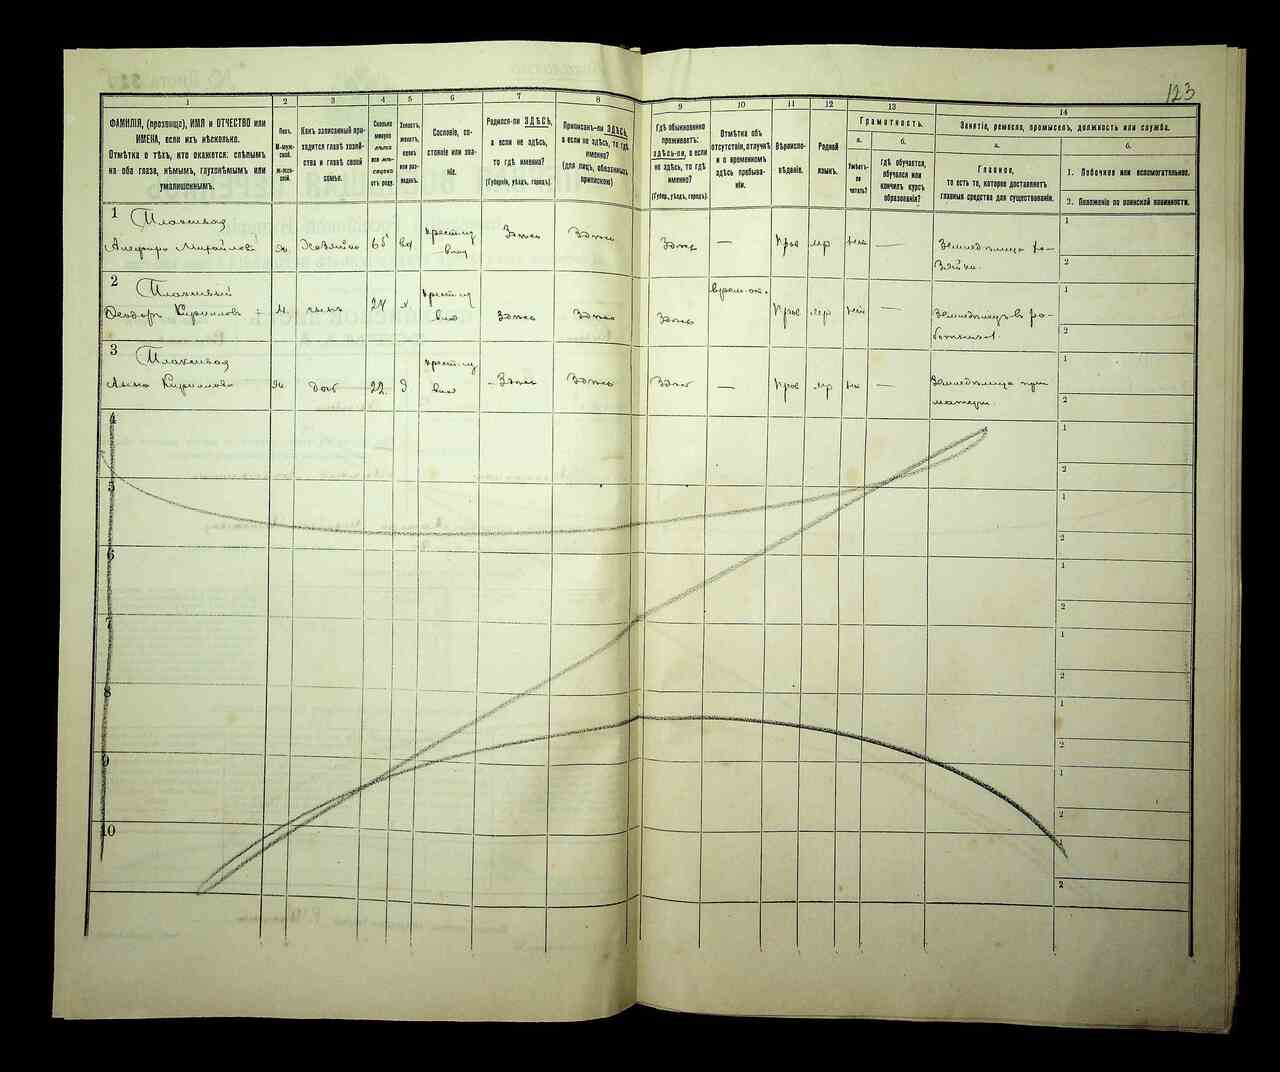 123
1
2
3
4
5
6
7
8
9
10
11
12
13
14
ФАМИЛІЯ, (прозвище), ИМЯ и ОТЧЕСТВО или
ИМЕНА, если ихъ нѣсколько.
Отмѣтка о тѣхъ, кто окажется: слѣпымъ
на оба глаза, нѣмымъ, глухонѣмымъ или
умалишеннымъ.
Полъ.
М-муж-
ской.
Ж-жен-
ской.
Какъ записанный при-
ходится главѣ хозяй-
ства и главѣ своей
семьи.
Сколько
минуло
лѣтъ
или мѣ-
сяцевъ
отъ роду.
Холостъ,
женатъ,
вдовъ
или раз-
веденъ.
Сословіе, со-
стояніе или зва-
ніе.
Родился-ли ЗДѢСЬ,
а если не здѣсь,
то гдѣ именно?
(Губернія, уѣздъ, городъ).
Приписанъ-ли ЗДѢСЬ,
а если не здѣсь, то гдѣ
именно?
(для лицъ, обязанныхъ
припискою)
Гдѣ обыкновенно
проживаетъ:
здѣсь-ли, а если
не здѣсь, то гдѣ
именно?
(Губер., уѣздъ, городъ).
Отмѣтка объ
отсутствіи, отлучкѣ
и о временномъ
здѣсь пребыва-
ніи.
Вѣроиспо-
вѣданіе.
Родной
языкъ.
Грамотность.
а.
б.
Умѣетъ-
ли
читать?
Гдѣ обучается,
обучался или
кончилъ курсъ
образованія?
Занятіе, ремесло, промыселъ, должность или служба.
а.
б.
Главное,
то есть то, которое доставляетъ
главныя средства для существованія.
1. Побочное или вспомогательное.
2. Положеніе по воинской повинности.
1
Плаксивая
Михайлова
ж.
Хозяйка
65
вд
крест. из
влад
Здѣсь
Здѣсь
Здѣсь
—
Прав
мр
нет
—
Земледѣлица хо-
зяйка.
1
2
2
Плаксивый
Ѳеодоръ Кирилловъ +
м.
сынъ
24
х
крест. из
влад
Здѣсь
Здѣсь
Здѣсь
врем. от.
Прав
мр
нет
—
Земледѣлецъ-въ ра-
ботниках
1
2
3
Плаксивая
Анна Кириллова
ж
доч
22
д
крест. из
влад
Здѣсь
Здѣсь
Здѣс
—
Прав
мр
нет
—
Земледѣлица при
матери.
1
2
4
1
2
5
1
2
6
1
2
7
1
2
8
1
2
9
1
2
10
1
2